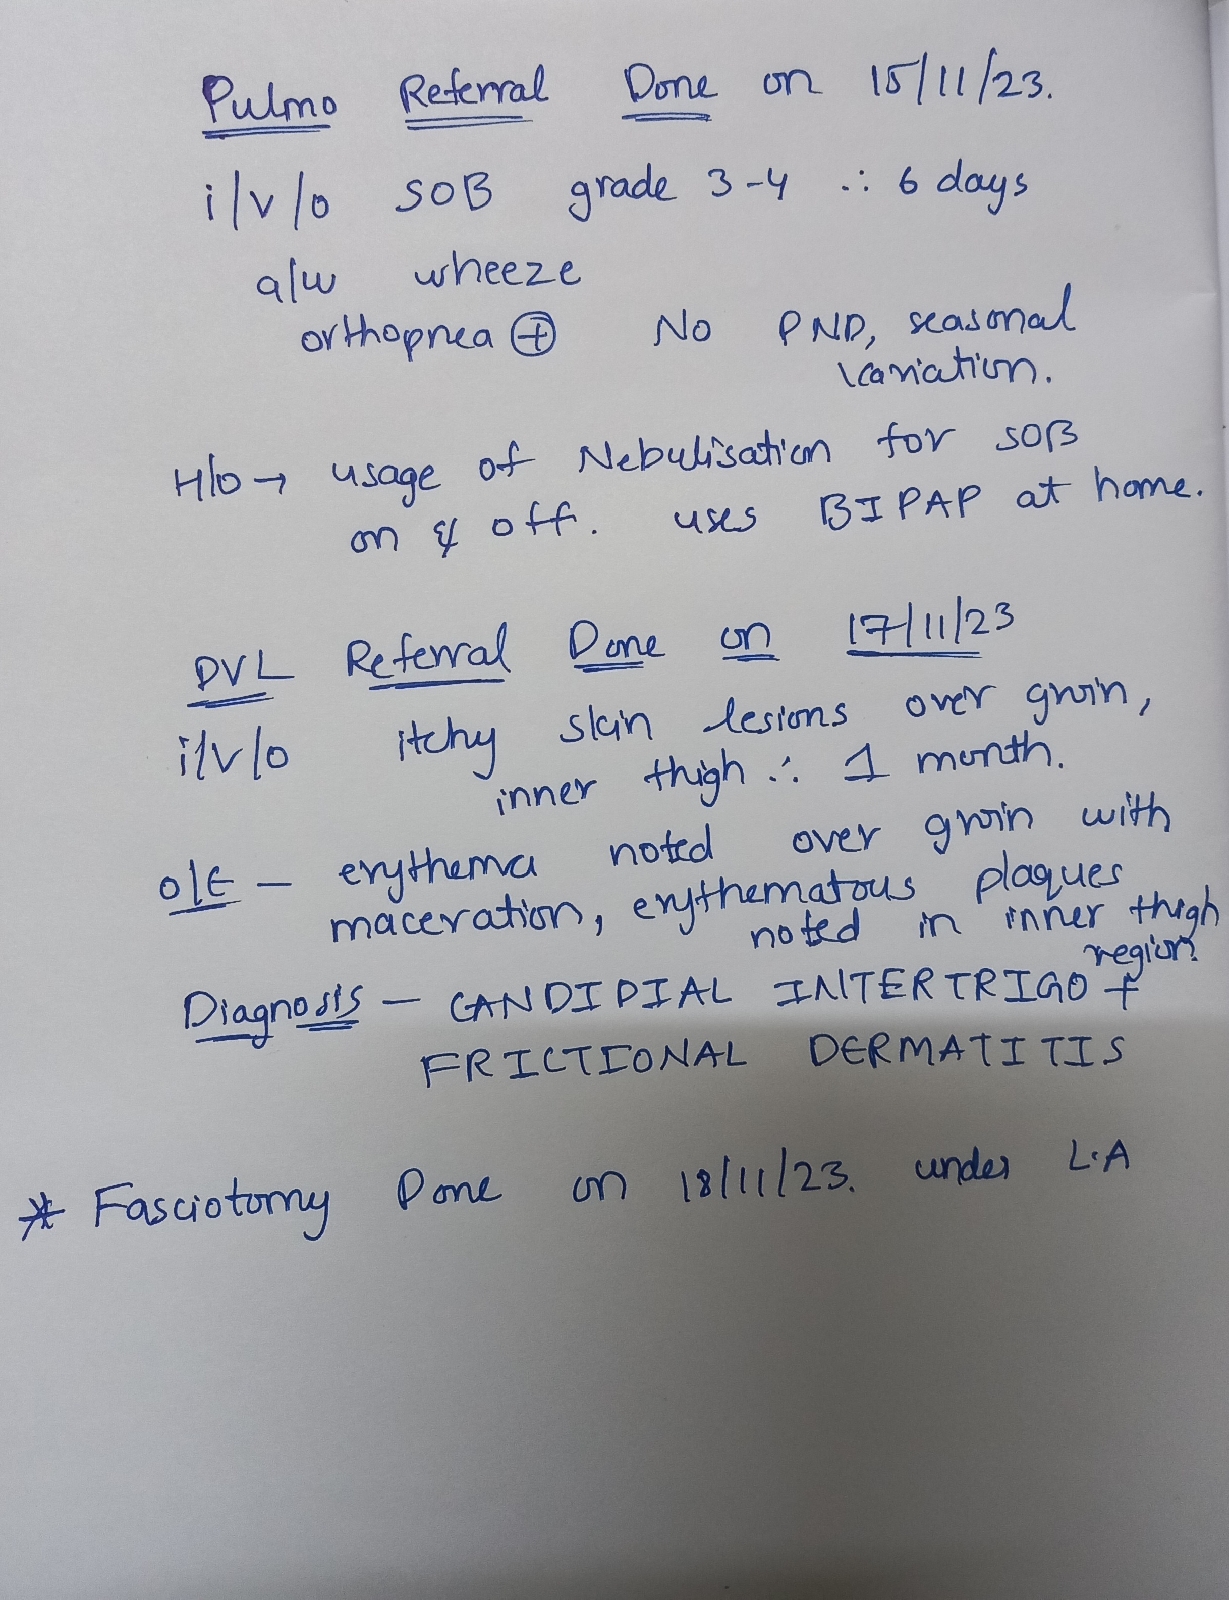 Pulmo Referral Done on 15/11/23.
i/v/o SOB grade 3-4 ∴ 6 days
a/w wheeze
orthopnea ⊕ No PND, seasonal
variation.
H/o → usage of Nebulisation for SOB
on & off. uses BIPAP at home.
DVL Referral Done on 17/11/23
i/v/o itchy skin lesions over groin,
inner thigh ∴ 1 month.
o/E - erythema noted over groin with
maceration, erythematous plaques
noted in inner thigh
region.
Diagnosis - CANDIDIAL INTERTRIGO +
FRICTIONAL DERMATITIS
* Fasciotomy Done on 18/11/23. under L.A